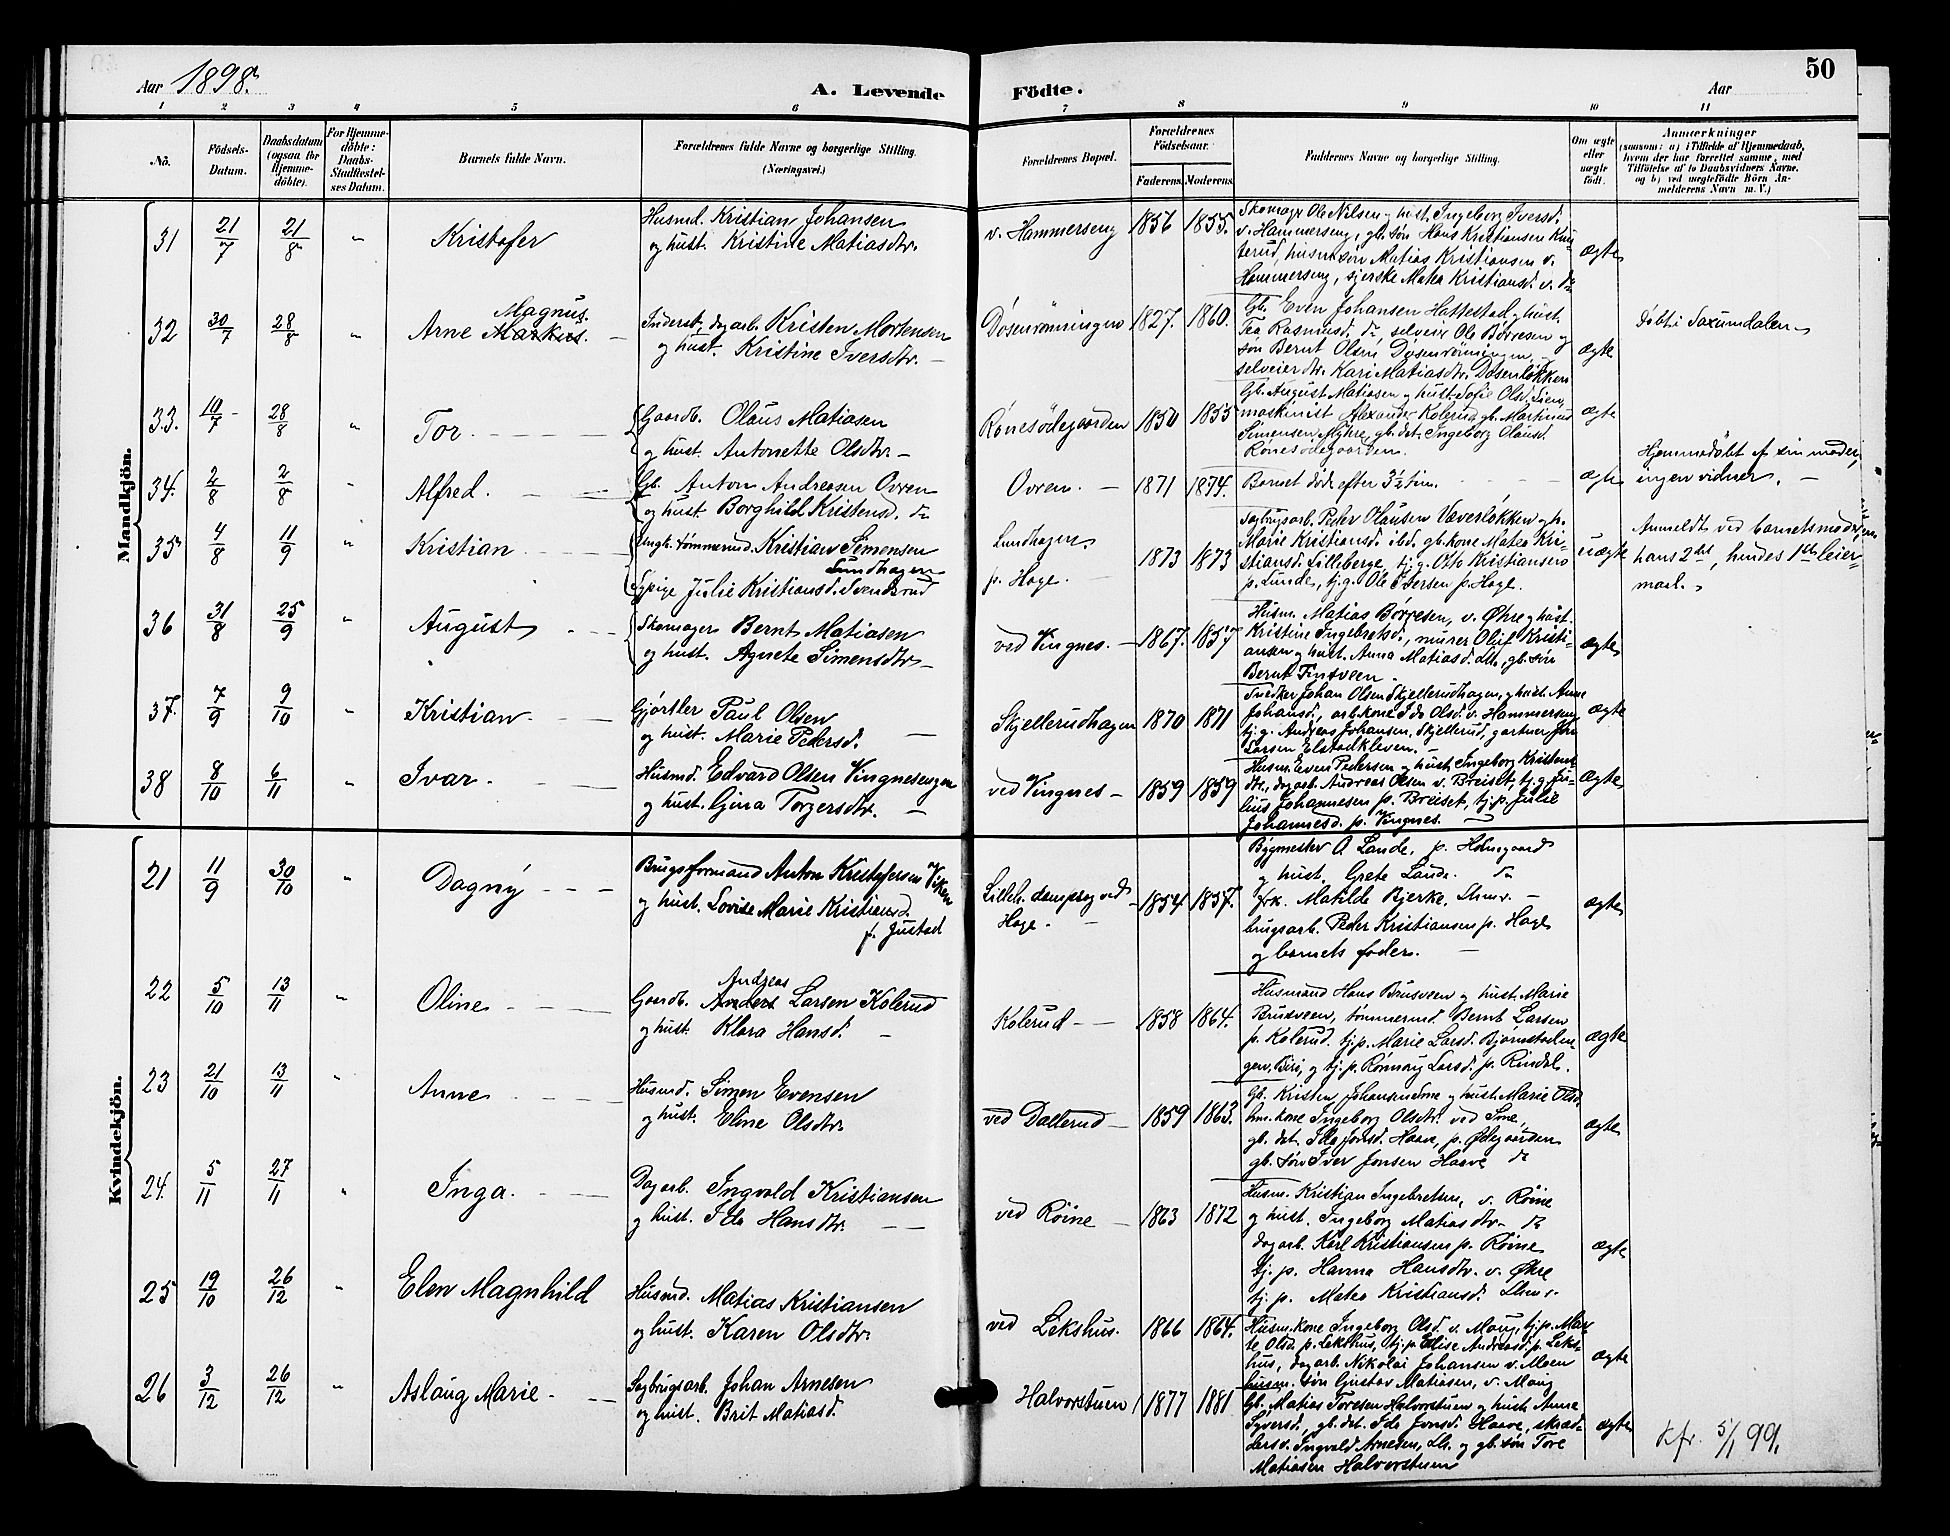 50
Aar 1898.
A. Levende Födte.
Aar
1 2 3 4 5 6 7 8 9 10 11
No. Födsels-Datum. Daabsdatum (ogsaa for Hjemmedöbte). For Hjemmedöbte: Daabs-Stadfæstelses Datum. Barnets fulde Navn. Forældrenes fulde Navne og borgerlige Stilling. (Næringsvei.) Forældrenes Bopæl. Forældrenes Födselsaar. Faderens. Moderens. Faddernes Navne og borgerlige Stilling. Om ægte eller uægte födt. Anmærkninger (saasom: a) i Tilfælde af Hjemmedaab, hvem der har forrettet samme, med Tilföielse af to Daabsvidners Navne, og b) ved uægtefödte Börn Anmelderens Navn m. V.)
Mandkjön.
31 21/7 21/8 " Kristofer
Husmd. Kristian Johansen
og hust. Kristine Matiasdtr.
v. Hammerseng 1856 1855.
Skomager Ole Nilsen og hust. Ingeborg Iversd.
v. Hammerseng, gb. søn Hans Kristiansen
husm. søn Matias Kristiansen v.
Hammerseng, syerske Matea Kristiansd. v. do
ægte
32 30/7 28/8 " Arne Markus. Magnus.
Inderst, dagarb. Kristen Mortensen
og hust. Kristine Iversdtr.
Døsenrønningen 1827. 1860.
Gb. Even Johansen Hattestad og hust.
Tea Rasmusd. do, selveier Ole Børresen og
søn Bernt Olsen Døsenrønningen,
selveierdtr. Kari Matiasdtr. Døsenløkken
ægte
Døbt i Saxumdalen
33. 10/7 28/8 " Tor.
Gaardb. Olaus Matiasen
og hust. Antonette Olsdtr.
Rønesødegaarden 1850 1855
Gb. August Matiasen og hust. Sofie Olsd.
maskinist Alexander Kolerud, gb. Martinus
Simensen Myhre, gb. det. Ingeborg Olausd.
Rønesødegaarden.
ægte
34. 2/8 2/8 " Alfred.
Gb. Anton Andreasen Ovren
og hust. Borghild Kristensd. do
Ovren. 1871 1874.
Barnet døde efter 3½ tim.
ægte
Hjemmedøbt af sin moder,
ingen vidner.
35 4/8 11/9 " Kristian
Ungk. tømmermd. Kristian Simensen
Lundhagen
og pige Julie Kristiansd. Svendsrud
Lundhagen
p. Hage. 1873 1873
Sagbrugsarb. Peder Olausen Væverløkken og h.
Marie Kristiansd. ibd. gb. kone Matea Kristiansd.
Lilleberge, tj.g. Otto Kristiansen
p. Lunde, tj.g. Ole Iversen p. Hage.
uægte
Anmeldt ved barnets moder,
hans 2det, hendes 1ste leiermaal.
36 31/8 25/9 " August
Skomager Bernt Matiasen
og hust. Agnete Simensdtr.
ved Vingnes. 1867. 1857
Husm. Matias Børresen, v. Øhre og hust.
Kristine Ingebretsd., murer Oluf Kristiansen
og hust. Anna Matiasd. Lhr, gb. søn
Bernt Finsveen.
ægte
37. 7/9 9/10 " Kristian.
Gjørtler Paul Olsen
og hust. Marie Pedersd.
Skjellerudhagen 1870 1871
Snedker Johan Olsen Skjellerudhagen, og hust. Anne
Johansd., arb. kone Ida Olsd. v. Hammerseng
tj.g. Andreas Johansen, Skjellerud, gartner
Larsen Elstadkleven.
ægte
38 8/10 6/11 " Ivar.
Husmd. Edvard Olsen Vingnesengen
og hust. Gina Torgersdtr.
ved Vingnes 1859 1859
Husm. Even Pedersen og hust. Ingeborg Kristensdtr.,
dagarb. Andreas Olsen v. Breiset, tj.g. Julius
Johannesen p. Breiset, tj.p. Julie
Johannesd. p. Vingnes.
ægte
Kvindekjön.
21 11/9 30/10 " Dagny
Brugsformand Anton Kristofersen Viken
og hust. Lovise Marie Kristiansd.
f. Justad
Lilleh. dampsag ved
Hage. 1854 1857.
Bygmester A Lande, p. Holmgaard
og hust. Grete Lande. do
frk. Matilde Bjerke, Lhmr.
brugsarb. Peder Kristiansen p. Hage
og barnets fader.
ægte
22 5/10 13/11 " Oline
Gaardb. Anders Andreas Larsen Kolerud
og hust. Klara Hansd.
Kolerud 1858 1864.
Husmand Hans Brusveen og hust. Marie
Brusveen, tømmermd. Bernt Larsen
p. Kolerud, tj.p. Marie Larsd. Bjørnstadengen,
Biri, og tj.p. Rønnaug Larsd. p. Rindal.
ægte
23 21/10 13/11 " Anne
Husmd. Simen Evensen
og hust. Eline Olsdtr.
ved Dallerud 1859 1863.
Gb. Kristen Johansen Sme og hust. Marie Olsd.
hm. kone Ingeborg Olsdtr. ved Sme,
gb. det. Ida Jonsd. Haave, p. Ødegaarden
gb. søn Iver Jonsen Haave do
ægte
24. 5/11 27/11 " Inga.
Dagarb. Ingvald Kristiansen
og hust. Ida Hansdtr.
ved Røine 1863 1872
Husm. Kristian Ingebretsen, v. Røine
og hust. Ingeborg Matiasdtr. do
dagarb. Karl Kristiansen p. Røine
tj. p. Hanna Hansdtr. v. Øhre
tj. p. Matea Kristiansd. Lhmr.
ægte
25 19/10 26/12 " Elen Magnhild
Husmd. Matias Kristiansen
og hust. Karen Olsdtr.
ved Lekshus. 1866 1864.
Husm. kone Ingeborg Olsd. v. Maug, tj.p. Marte
Olsd. p. Lekshus, tj.p. Elise Andreasd. p. Lekshus,
dagarb. Nikolai Johansen v. Moen
husm. søn Gustav Matiasen, v. Maug
ægte
26 3/12 26/12 " Aslaug Marie
Sagbrugsarb. Johan Arnesen
og hust. Brit Matiasd.
Halvorstuen 1877 1881
Gb. Matias Toresen Halvorstuen og hust. Anne
Syversd., gb. det. Ida Jonsd. Haave, skræddersv.
Ingvald Arnesen, Lh. og gb. søn Tore
Matiasen Halvorstuen
ægte
Kfr. 5/1 99.